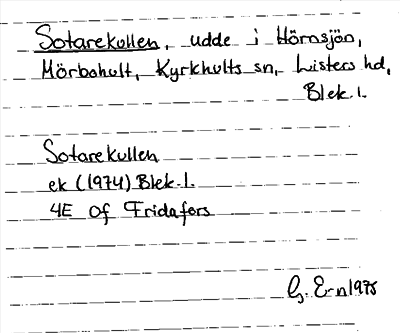 Sotarekullen, udde i Hörnsjön,
Mörboholt, Kyrkhults sn, Listers hd,
Blek.l.
Sotarekullen
ek (1974) Blek.l.
4E Of Fridafors
G. E-n 1975